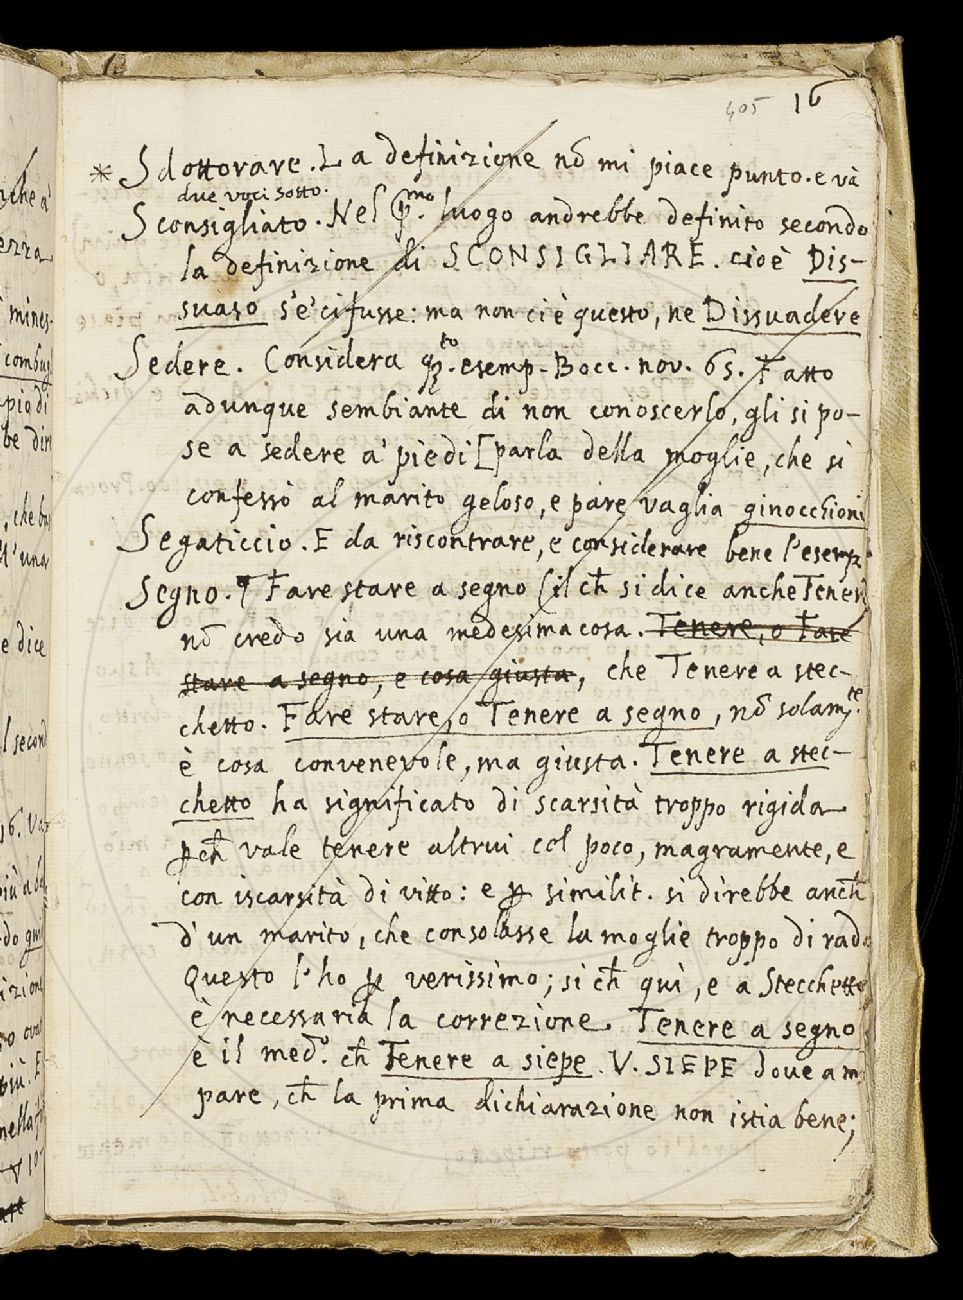 405 16
* Sdottorare. La definizione nō mi piace punto. e và
due voci sotto.
Sconsigliato. Nel p.mo luogo andrebbe definito secondo
la definizione di SCONSIGLIARE. cioè Dis-
suaso s'e' ci fusse: ma non ci è questo, ne Dissuadere
Sedere. Considera q.to esemp. Bocc. nov. 65. Fatto
adunque sembiante di non conoscerlo, gli si po-
se a sedere a' piedi [parla della moglie, che si
confessò al marito geloso, e pare vaglia ginocchioni
Segaticcio. E da riscontrare, e considerare bene l'esemp.
Segno. ¶ Fare stare a segno (il ch̄ si dice anche Tenere
nō credo sia una medesima cosa. Tenere, o Fare
stare a segno, e cosa giusta, che Tenere a stec-
chetto. Fare stare, o Tenere a segno, nō solam.te
è cosa convenevole, ma giusta. Tenere a stec-
chetto ha significato di scarsità troppo rigida
ꝑch̄ vale tenere altrui col poco, magramente, e
con iscarsità di vitto: e ꝑ similit. si direbbe anch̄
d' un marito, che consolasse la moglie troppo di rado
Questo l' ho ꝑ verissimo; si ch̄ quì, e a Stecchetto
è necessaria la correzione. Tenere a segno
è il med.o ch̄ Tenere a siepe. V. SIEPE dove a m
pare, ch̄ la prima dichiarazione non istia bene;